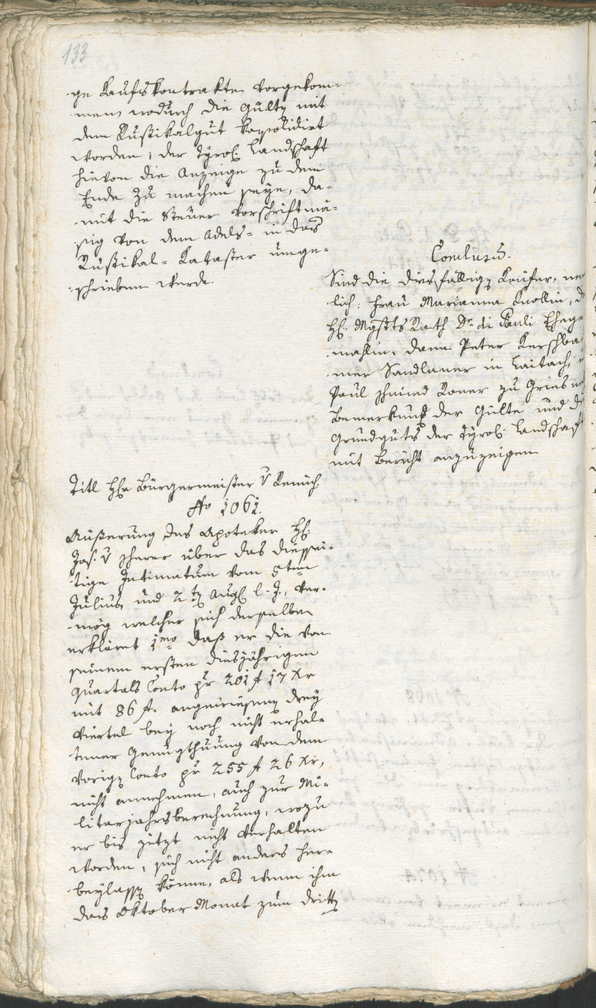 133
ge Kaufskontrakte vorgekom-
men, wodurch die Gülty mit
dem Rustikalgut konsolidirt
worden, der Tyrol. Landschaft
hievon die Anzeige zu dem
Ende zu machen seye, da-
mit die Steuer vorschriftmä-
sig von dem Adels- in das
Rustikal-Kataster umge-
schrieben werde.
Conclusum.
Sind die diesfälligen Käufer, 
lich: Frau Marianna
HE. Rath Dr. di Pauli Ehege-
mahlin, dann Peter Kerschba-
mer Sandlaner in Laitach,
Paul Roner zu Gries
Bemerkung der Gülte und
Grundguts der Tyrol. Landschaft
mit Bericht anzuzeigen
Titl HE Bürgermeister v
No 1061.
Äußerung des Apoteker H.
Jos. v über das diessei-
tige Intimatum vom 5ten
Julius und 2 Aug. l. J., ver-
mög welcher sich derselbe
erklärt 1mo daß er die von
seinem ersten diesjährigen
Quartals Conto pr 201 f 17 Xr
mit 86 f. angewiesenen drey
Viertel bey noch nicht erhal-
tener Genugthuung von dem
vorigen Conto pr 255 f 26 Xr,
nicht annehmen, auch zur Mi-
litarjahrsberechnung, wozu
er bis jetzt nicht verhalten
worden, sich nicht anders her-
beylassen könne, als wenn ihm
das Oktober Monat zum dritten